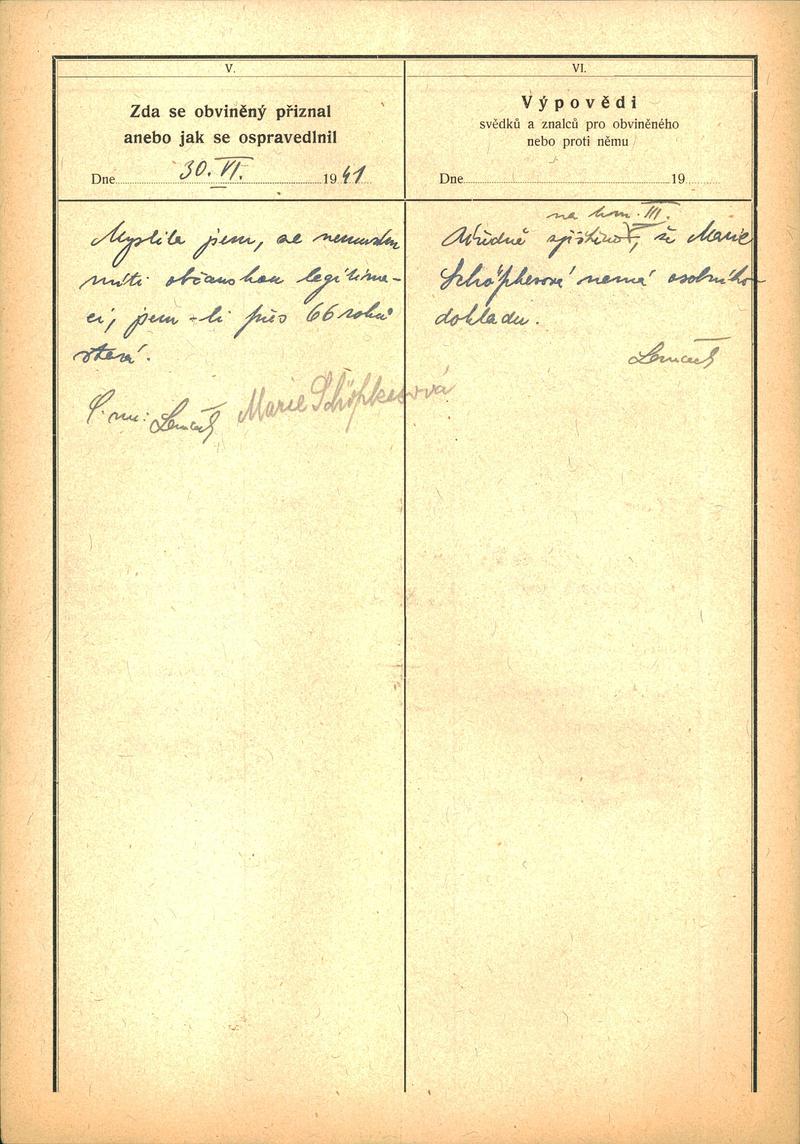 V.
Zda se obviněný přiznal
anebo jak se ospravedlnil
Dne 30. VI. 1941
Myslila jsem, že nemusím
míti občanskou legitima-
ci, jsem-li přes 66 roků
stará.
Marie Schöpkesová
VI.
Výpovědi
svědků a znalců pro obviněného
nebo proti němu
Dne 19
na kom. III.
Úředně zjištěno, že Marie
nemá osobního
dokladu.